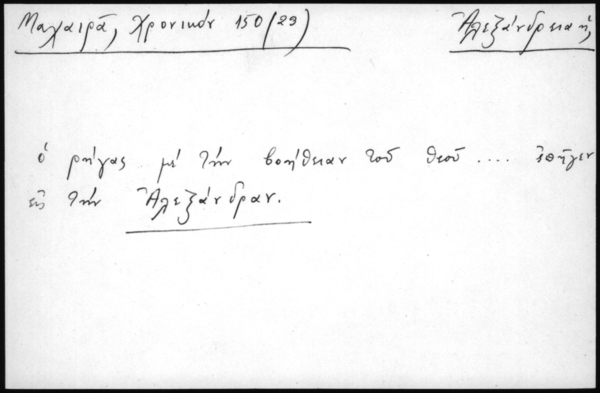 Μαχαιρᾶ, Χρονικόν 150/(29) Ἀλεξάνδρεια ἡ,
ὁ ρήγας μὲ τὴν βοήθειαν τοῦ θεοῦ .... ἐπῆγεν
εἰς τὴν Ἀλεξάνδραν.